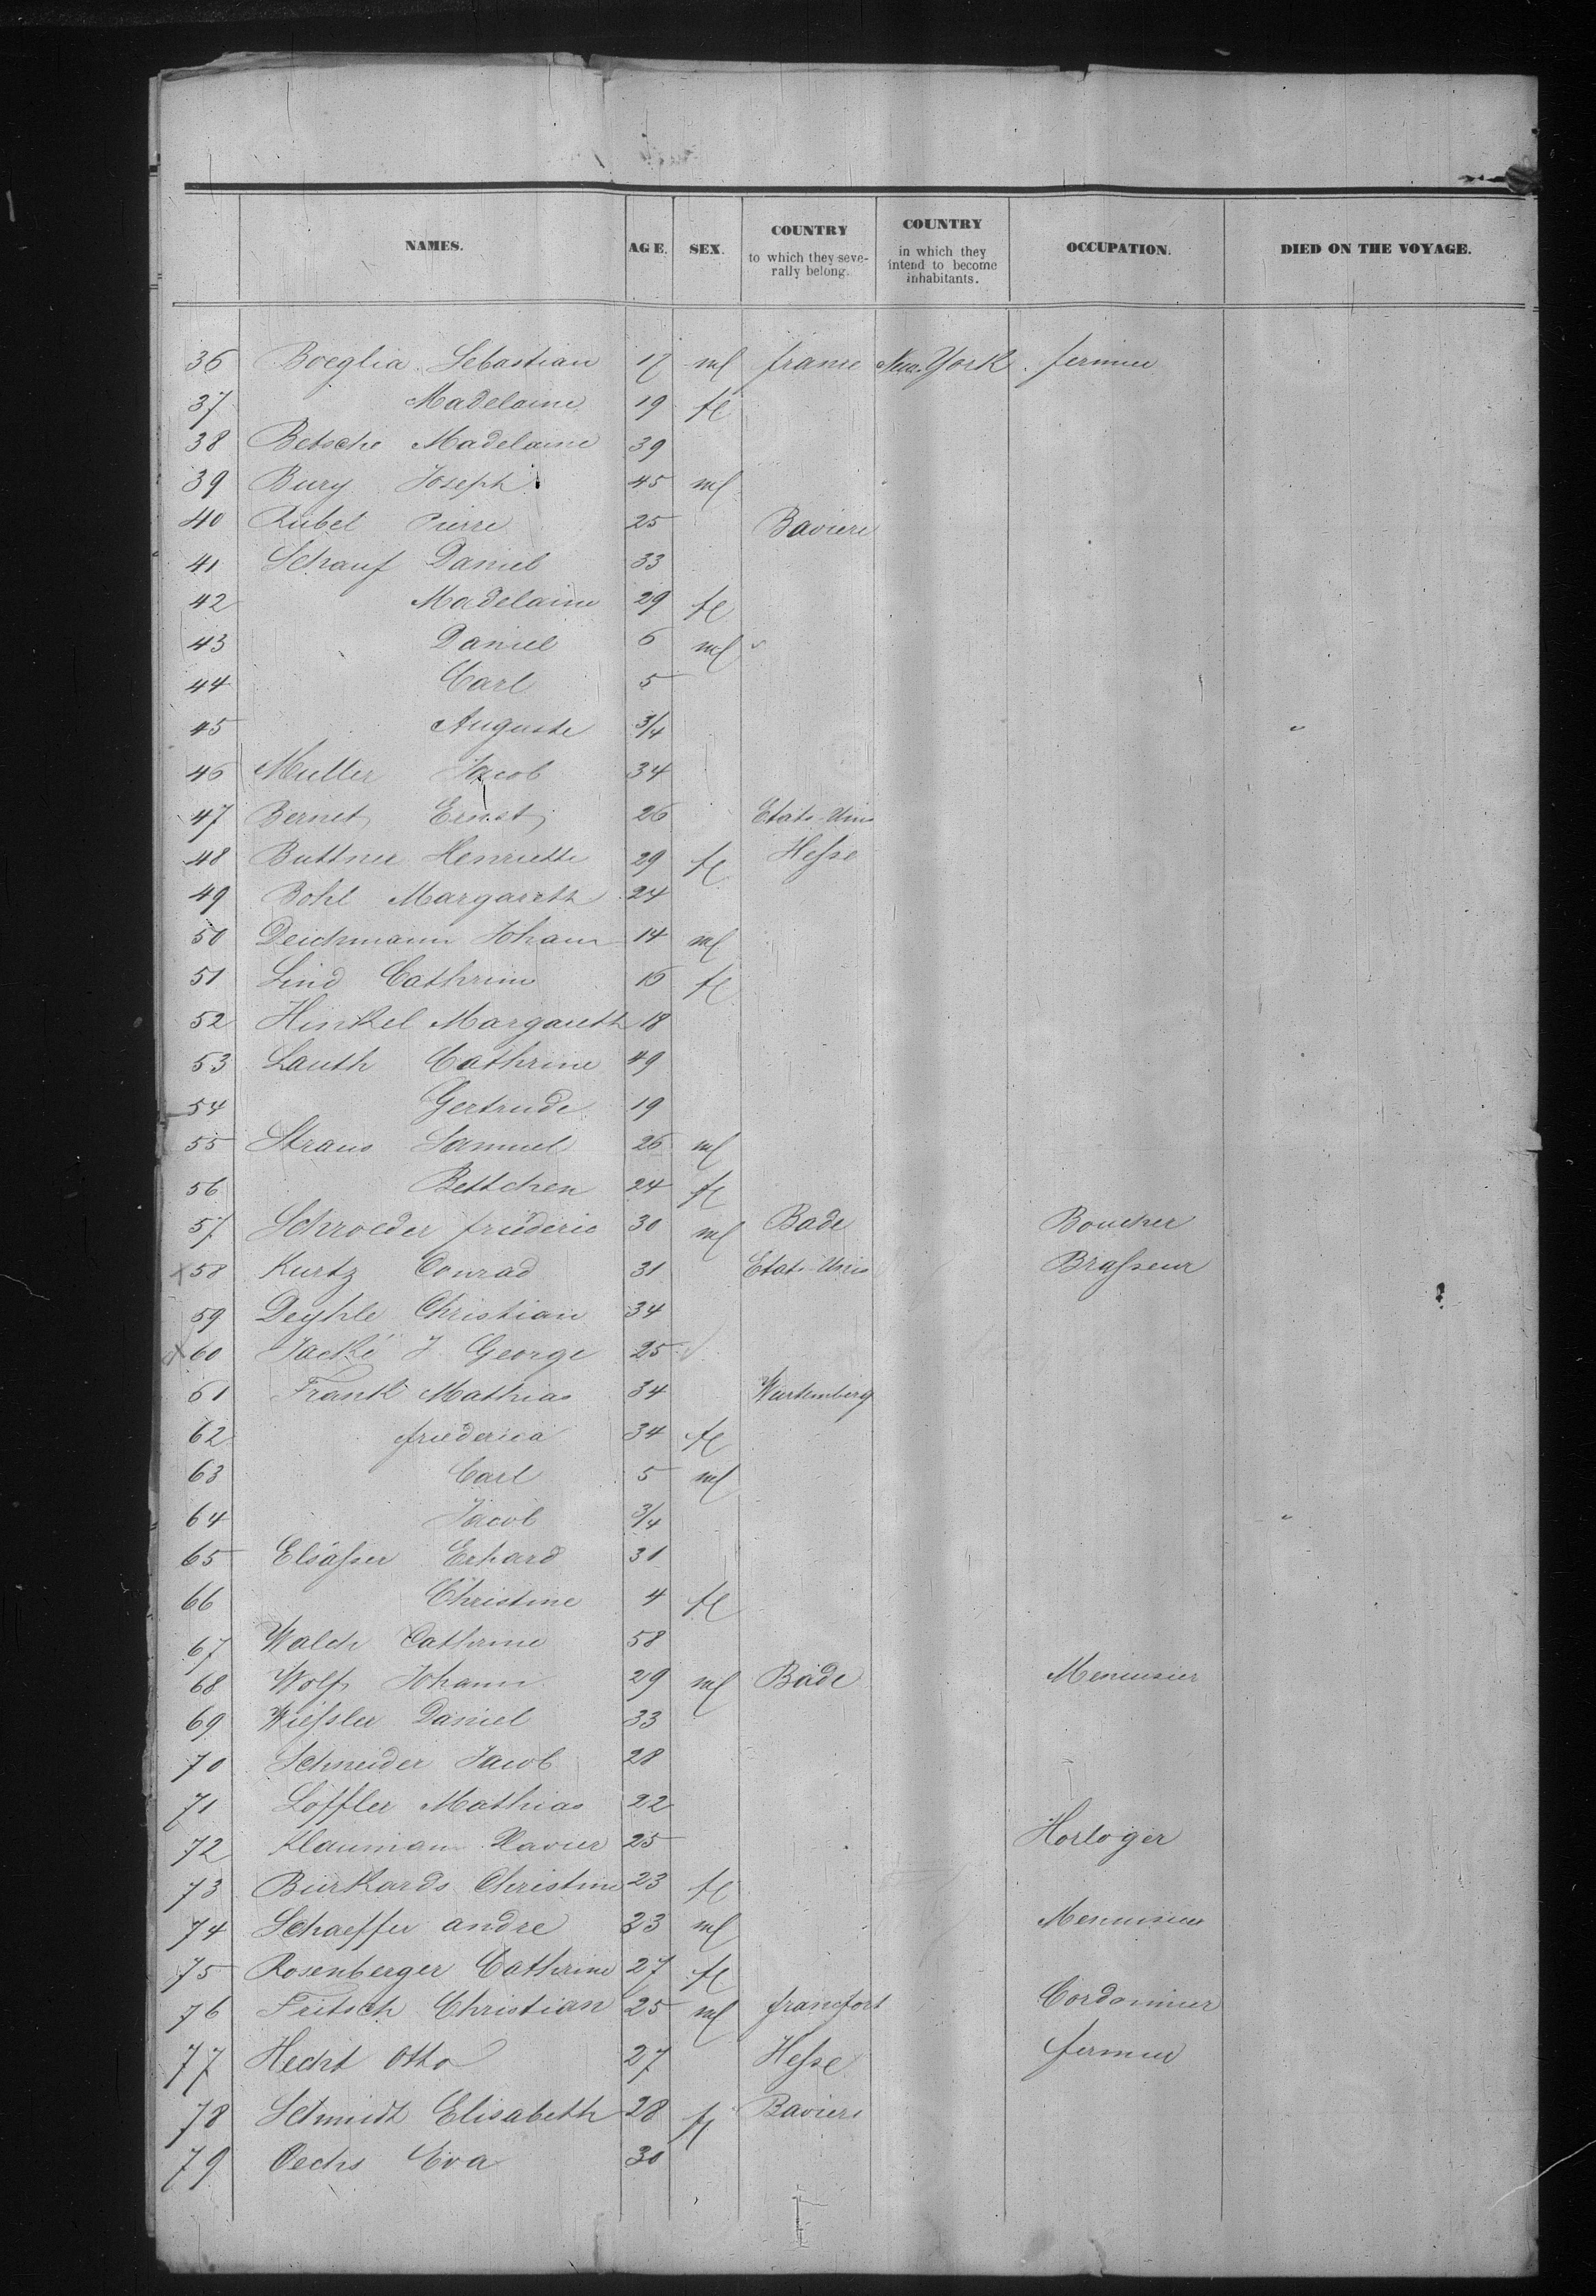 NAMES. AGE. SEX. COUNTRY to which they severally belong. COUNTRY in which they intend to become inhabitants. OCCUPATION. DIED ON THE VOYAGE.
36 Boeglia Sebastian 17 ml france New York fermier
37 Madelaine 19 fl
38 Betsche Madelaine 39
39 Bury Joseph 45 ml
40 Rubel Pierre 25 Baviere
41 Schauf Daniel 33
42 Madelaine 29 fl
43 Daniel 6 ml
44 Carl 5
45 Auguste 3/4
46 Muller Jacob 34
47 Bernet Ernst 26 Etats-Unis
48 Buttner Henriette 29 fl Hesse
49 Bohl Margareth 24
50 Deichmann Johann 14 ml
51 Lind Cathrine 16 fl
52 Hinkel Margareth 18
53 Lauth Cathrine 49
54 Gertrude 19
55 Straus Samuel 26 ml
56 Bettchen 24 fl
57 Schroeder friederic 30 ml Bade Boucher
x 58 Kurtz Conrad 31 Etats-Unis Brasseur
59 Deyhle Christian 34
x 60 Jacké J. George 25
61 Frank Mathias 34 Wurtemberg
62 friederica 34 fl
63 Carl 5 ml
64 Jacob 3/4
65 Elsässer Erhard 31
66 Christine 4 fl
67 Walch Cathrine 58
68 Wolf Johann 29 ml Bade Menuisier
69 Wiessler Daniel 33
70 Schneider Jacob 28
71 Löffler Mathias 22
72 Klaumann Xavier 25 Horloger
73 Burkards Christine 23 fl
74 Schaeffer andre 23 ml Menuisier
75 Rosenberger Cathrine 27 fl
76 Fritsch Christian 25 ml francfort Cordonnier
77 Hecht Otto 27 Hesse fermier
78 Schmidt Elisabeth 28 fl Baviere
79 Oechs Eva 30